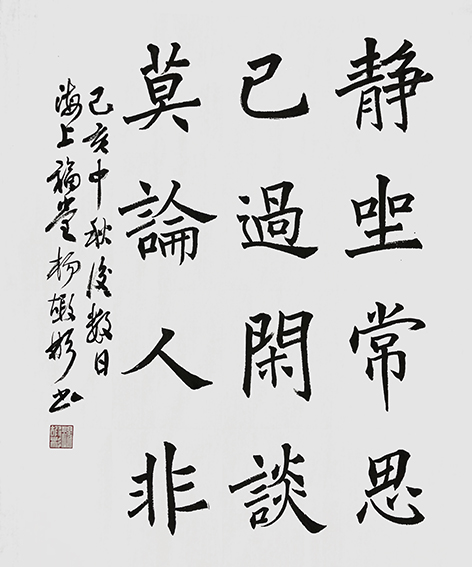 静坐常思
己過閑談
莫論人非
己亥中秋後數日
海上福堂楊敬彬書